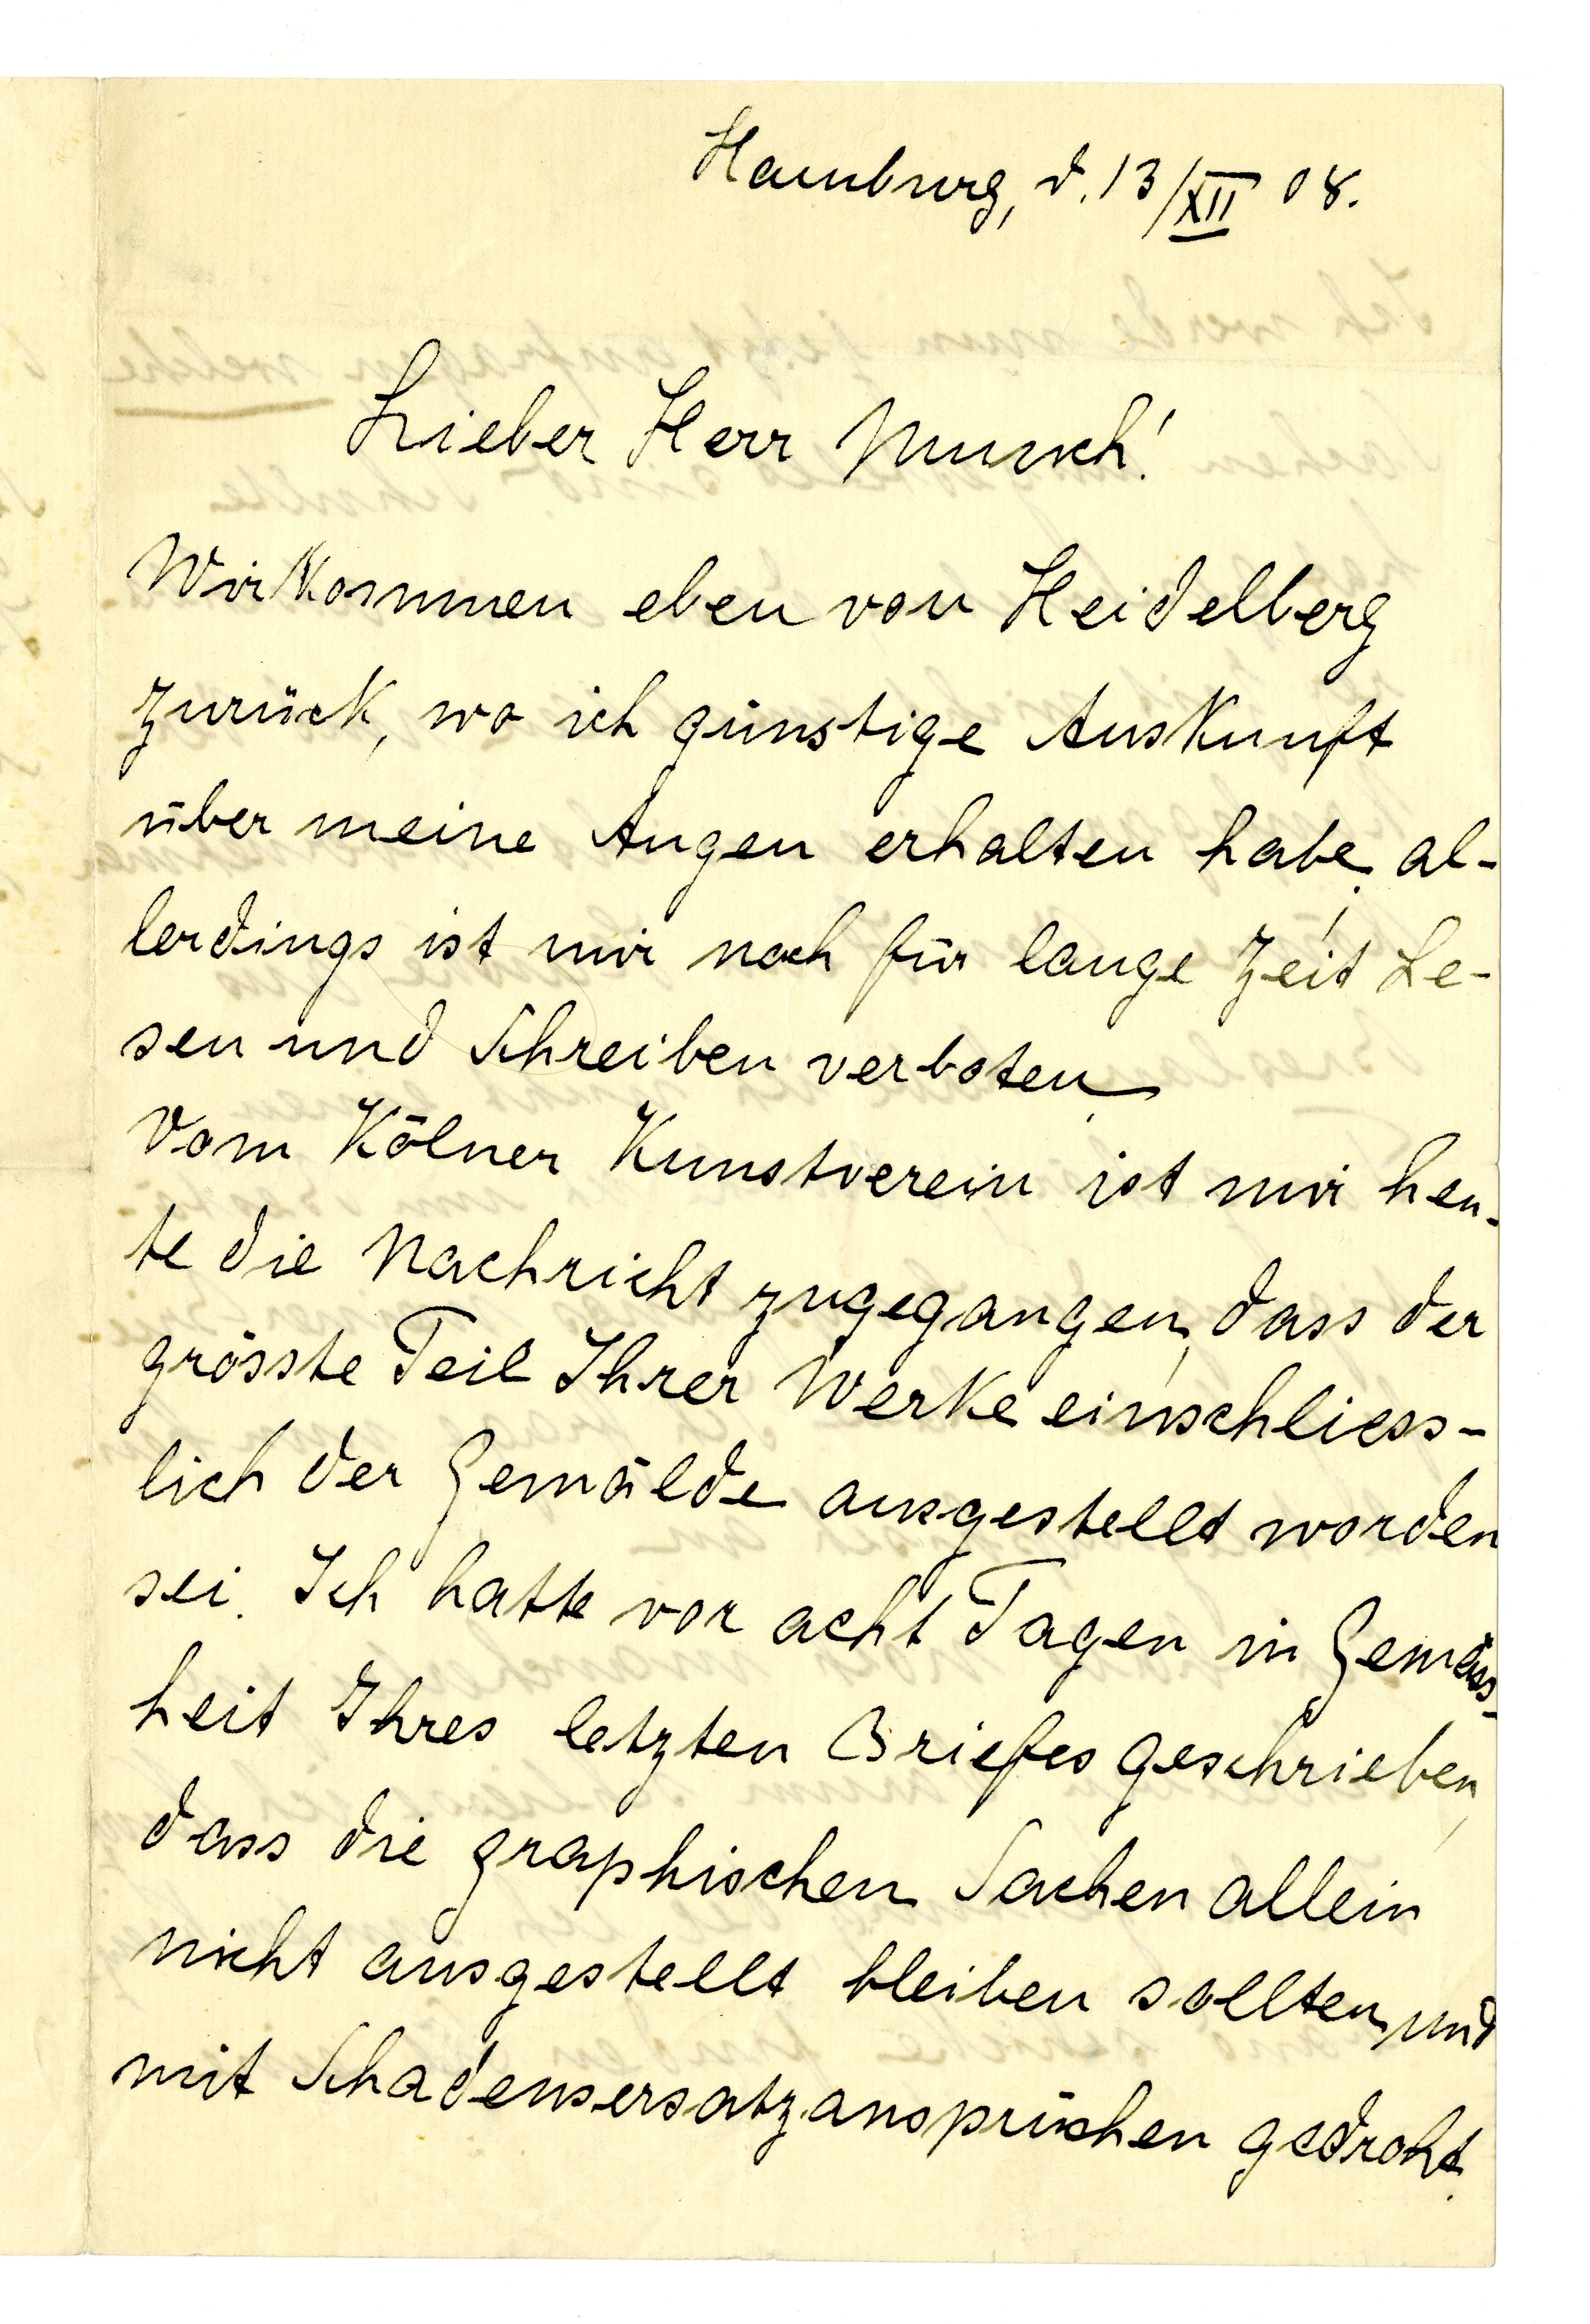 Hamburg, d. 13/XII 08.
Lieber Herr Munch!
Wir kommen eben von Heidelberg
zurück, wo ich günstige Auskunft
über meine Augen erhalten habe, al-
lerdings ist mir noch für lange Zeit Le-
sen und Schreiben verboten.
Vom Kölner Kunstverein ist mir heu-
te die Nachricht zugegangen, dass der
grösste Teil Ihrer Werke einschliess-
lich der Gemälde ausgestellt worden
sei. Ich hatte vor acht Tagen in Gemäss-
heit Ihres letzten Briefes geschrieben,
dass die graphischen Sachen allein
nicht ausgestellt bleiben sollten und
mit Schadensersatzansprüchen gedroht.